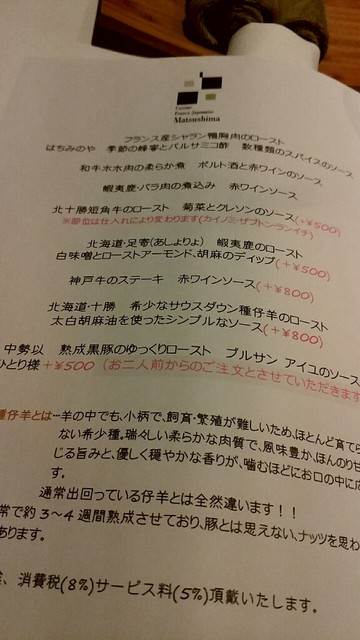 Cuisine
Franco Japonaise
Matsushima
フランス産シャラン鴨胸肉のロースト
はちみのや 季節の蜂蜜とバルサミコ酢 数種類のスパイスのソース
和牛ホホ肉の柔らか煮 ポルト酒と赤ワインのソース
蝦夷鹿・バラ肉の煮込み 赤ワインソース
北十勝短角牛のロースト 菊菜とクレソンのソース(+¥500)
※部位は仕入れにより変わります(カイノミ・ザブトンランイチ)
北海道・足寄(あしょりょ) 蝦夷鹿のロースト
白味噌とローストアーモンド、胡麻のディップ(+¥500)
神戸牛のステーキ 赤ワインソース(+¥800)
北海道・十勝 希少なサウスダウン種仔羊のロースト
太白胡麻油を使ったシンプルなソース(+¥800)
中勢以 熟成黒豚のゆっくりロースト ブルサン アイユのソース
ひとり様+¥500(お二人前からのご注文とさせていただきます
種仔羊とは…羊の中でも、小柄で、飼育・繁殖が難しいため、ほとんど育てら
ない希少種。瑞々しい柔らかな肉質で、風味豊か、ほんのり
じる旨みと、優しく穏やかな香りが、噛むほどにお口の中に
す。
通常出回っている仔羊とは全然違います!!
常で約3~4週間熟成させており、豚とは思えない、ナッツを思わ
あります。
、消費税(8%)サービス料(5%)頂戴いたします。